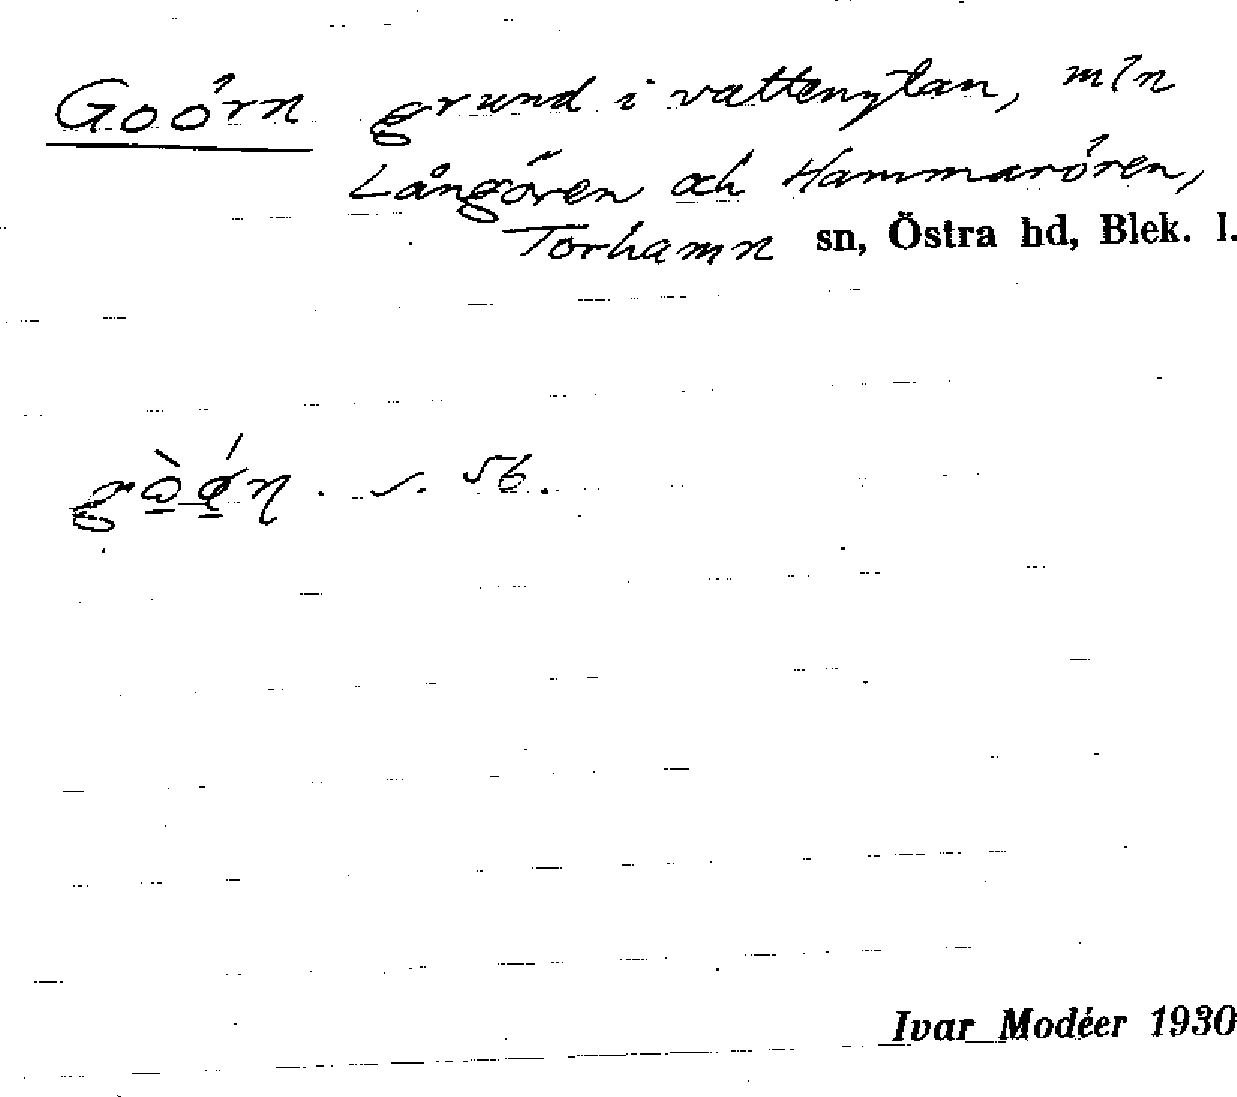 Goörn grund i vattenytan, m/n
Långören och Hammarören,
Torhamn sn, Östra hd, Blek. l.
s. 56.
Ivar Modéer 1930